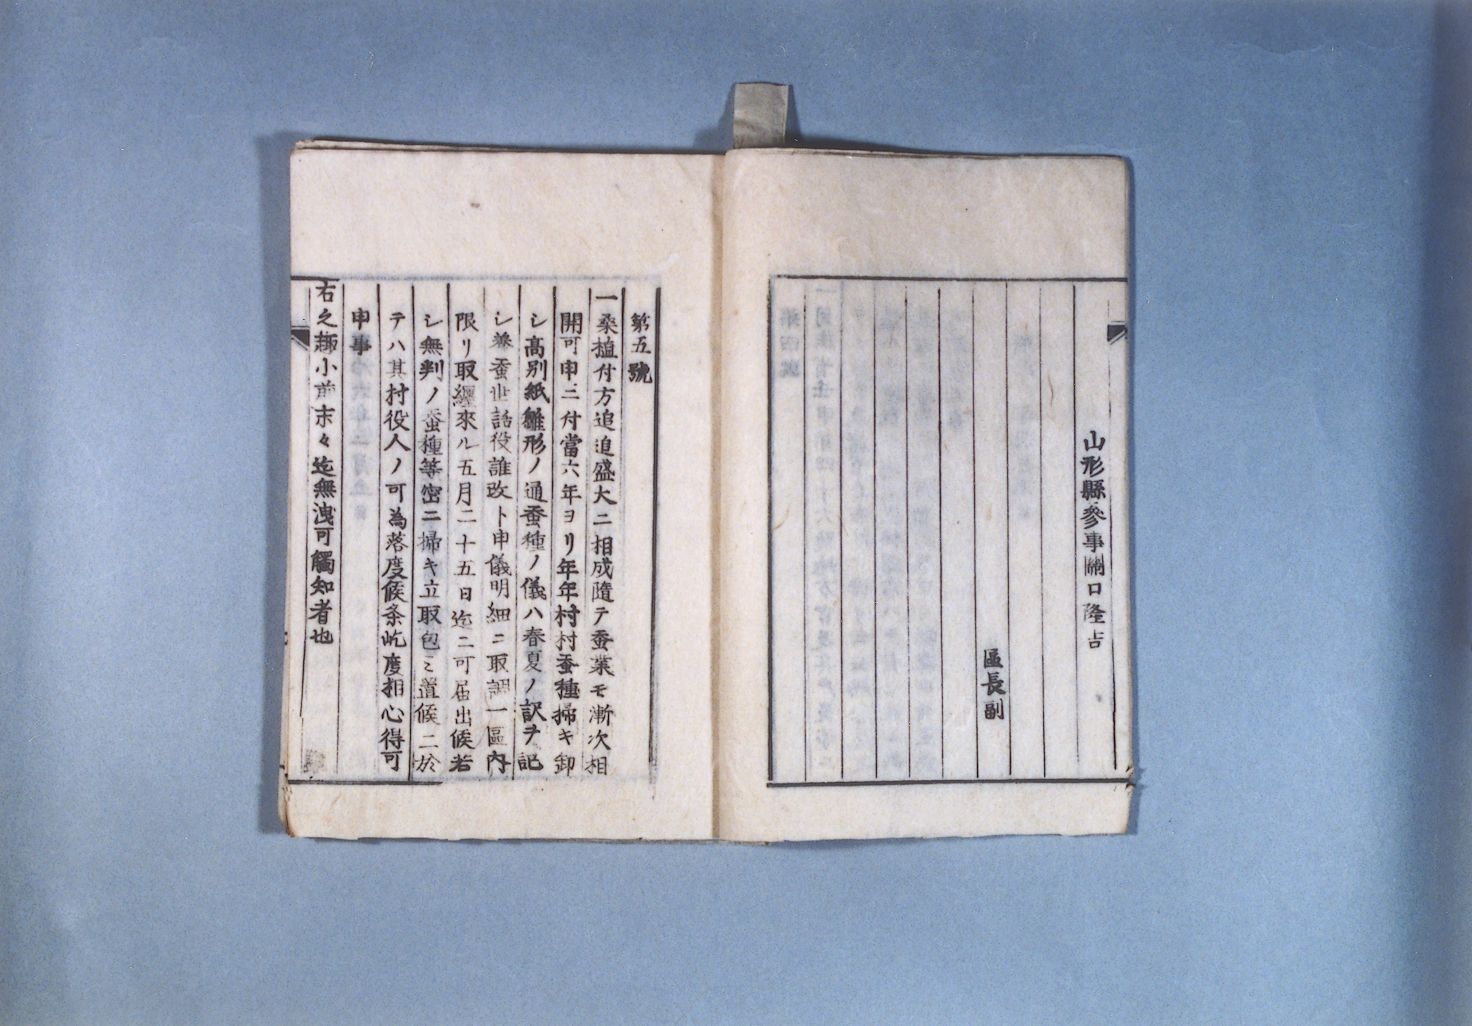 山形縣參事關口隆吉
區長副
第五號
一桑植付方追追盛大ニ相成隨テ蚕業モ漸次相
開可申ニ付當六年ヨリ年年村村蚕種掃キ卸
シ高別紙雛形ノ通蚕種ノ儀ハ春夏ノ訳ヲ記
シ養蚕世話役誰改ト申儀明細ニ取調一區内
限リ取纒來ル五月二十五日迄ニ可届出候若
シ無判ノ蚕種等密ニ掃キ立取包ミ置候ニ於
テハ其村役人ノ可為落度候条屹度相心得可
申事
右之趣小前末々迄無洩可觸知者也